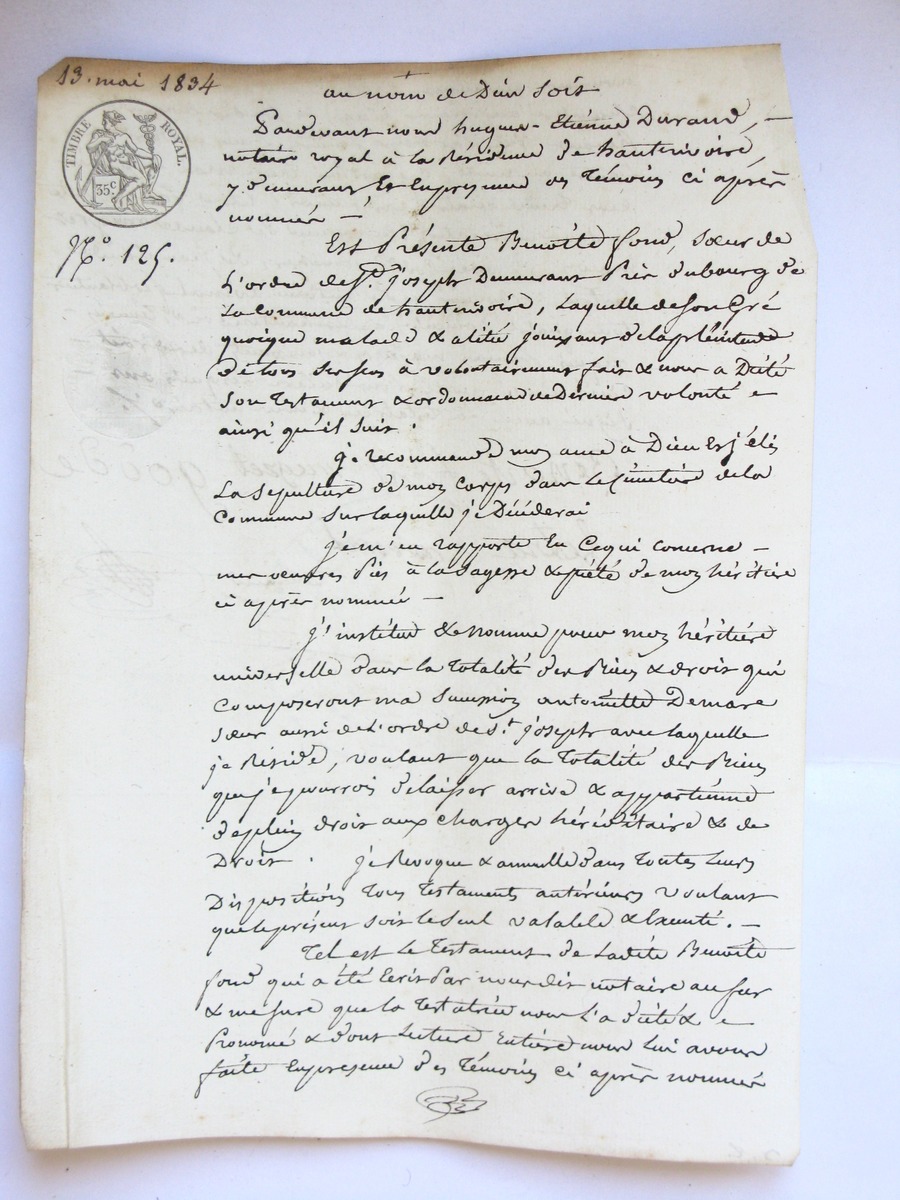 13. mai 1834
au nom de Dieu soit
TIMBRE ROYAL.
35c
No. 125.
Pardevant nous hugues-Etienne Durand, —
notaire royal à la Résidence de hauterivoire,
y demeurant Et En presence des Témoins ci après
nommés —
Est Présente Benoîte fond, sœur de
L'ordre de St. joseph Demeurant Près du bourg de
La Commune de hauterivoire, Laquelle de son Gré
quoique malade & alitée jouissant de la plénitude
de tous ses sens à volontairement fait & nous a Dicté
son Testament & ordonnance de Derniere volonté
ainsi qu'il suit.
je recommande mon ame à Dieu Et j'élis
La sépulture de mon corps dans le Cimetière de la
Commune sur laquelle je Décéderai
je m'en rapporte En Ce qui concerne —
mes œuvres Pies à la sagesse & piété de mon héritière
ci après nommée —
j'institue & nomme pour mon héritière
universelle dans la Totalité des Biens & droit qui
Composeront ma succession antoinette Demare
sœur aussi de L'ordre de St. joseph avec laquelle
je Réside, voulant que la Totalité des Biens
que je pourrois délaisser arrive & appartienne
de plein droit aux charges héréditaire & de
Droit. je Revoque & annulle dans Toutes Leurs
Dispositions Tous Testaments antérieurs voulant
que le présent soit le seul valable & Exécuté. —
Tel est Le Testament de Ladite Benoite
fond qui a été Ecrit Par nous dit notaire au fur
& mesure que la Testatrice nous l'a dicté &
Prononcé & dont Lecture Entière nous lui avons
faite En presence des Témoins ci après nommés